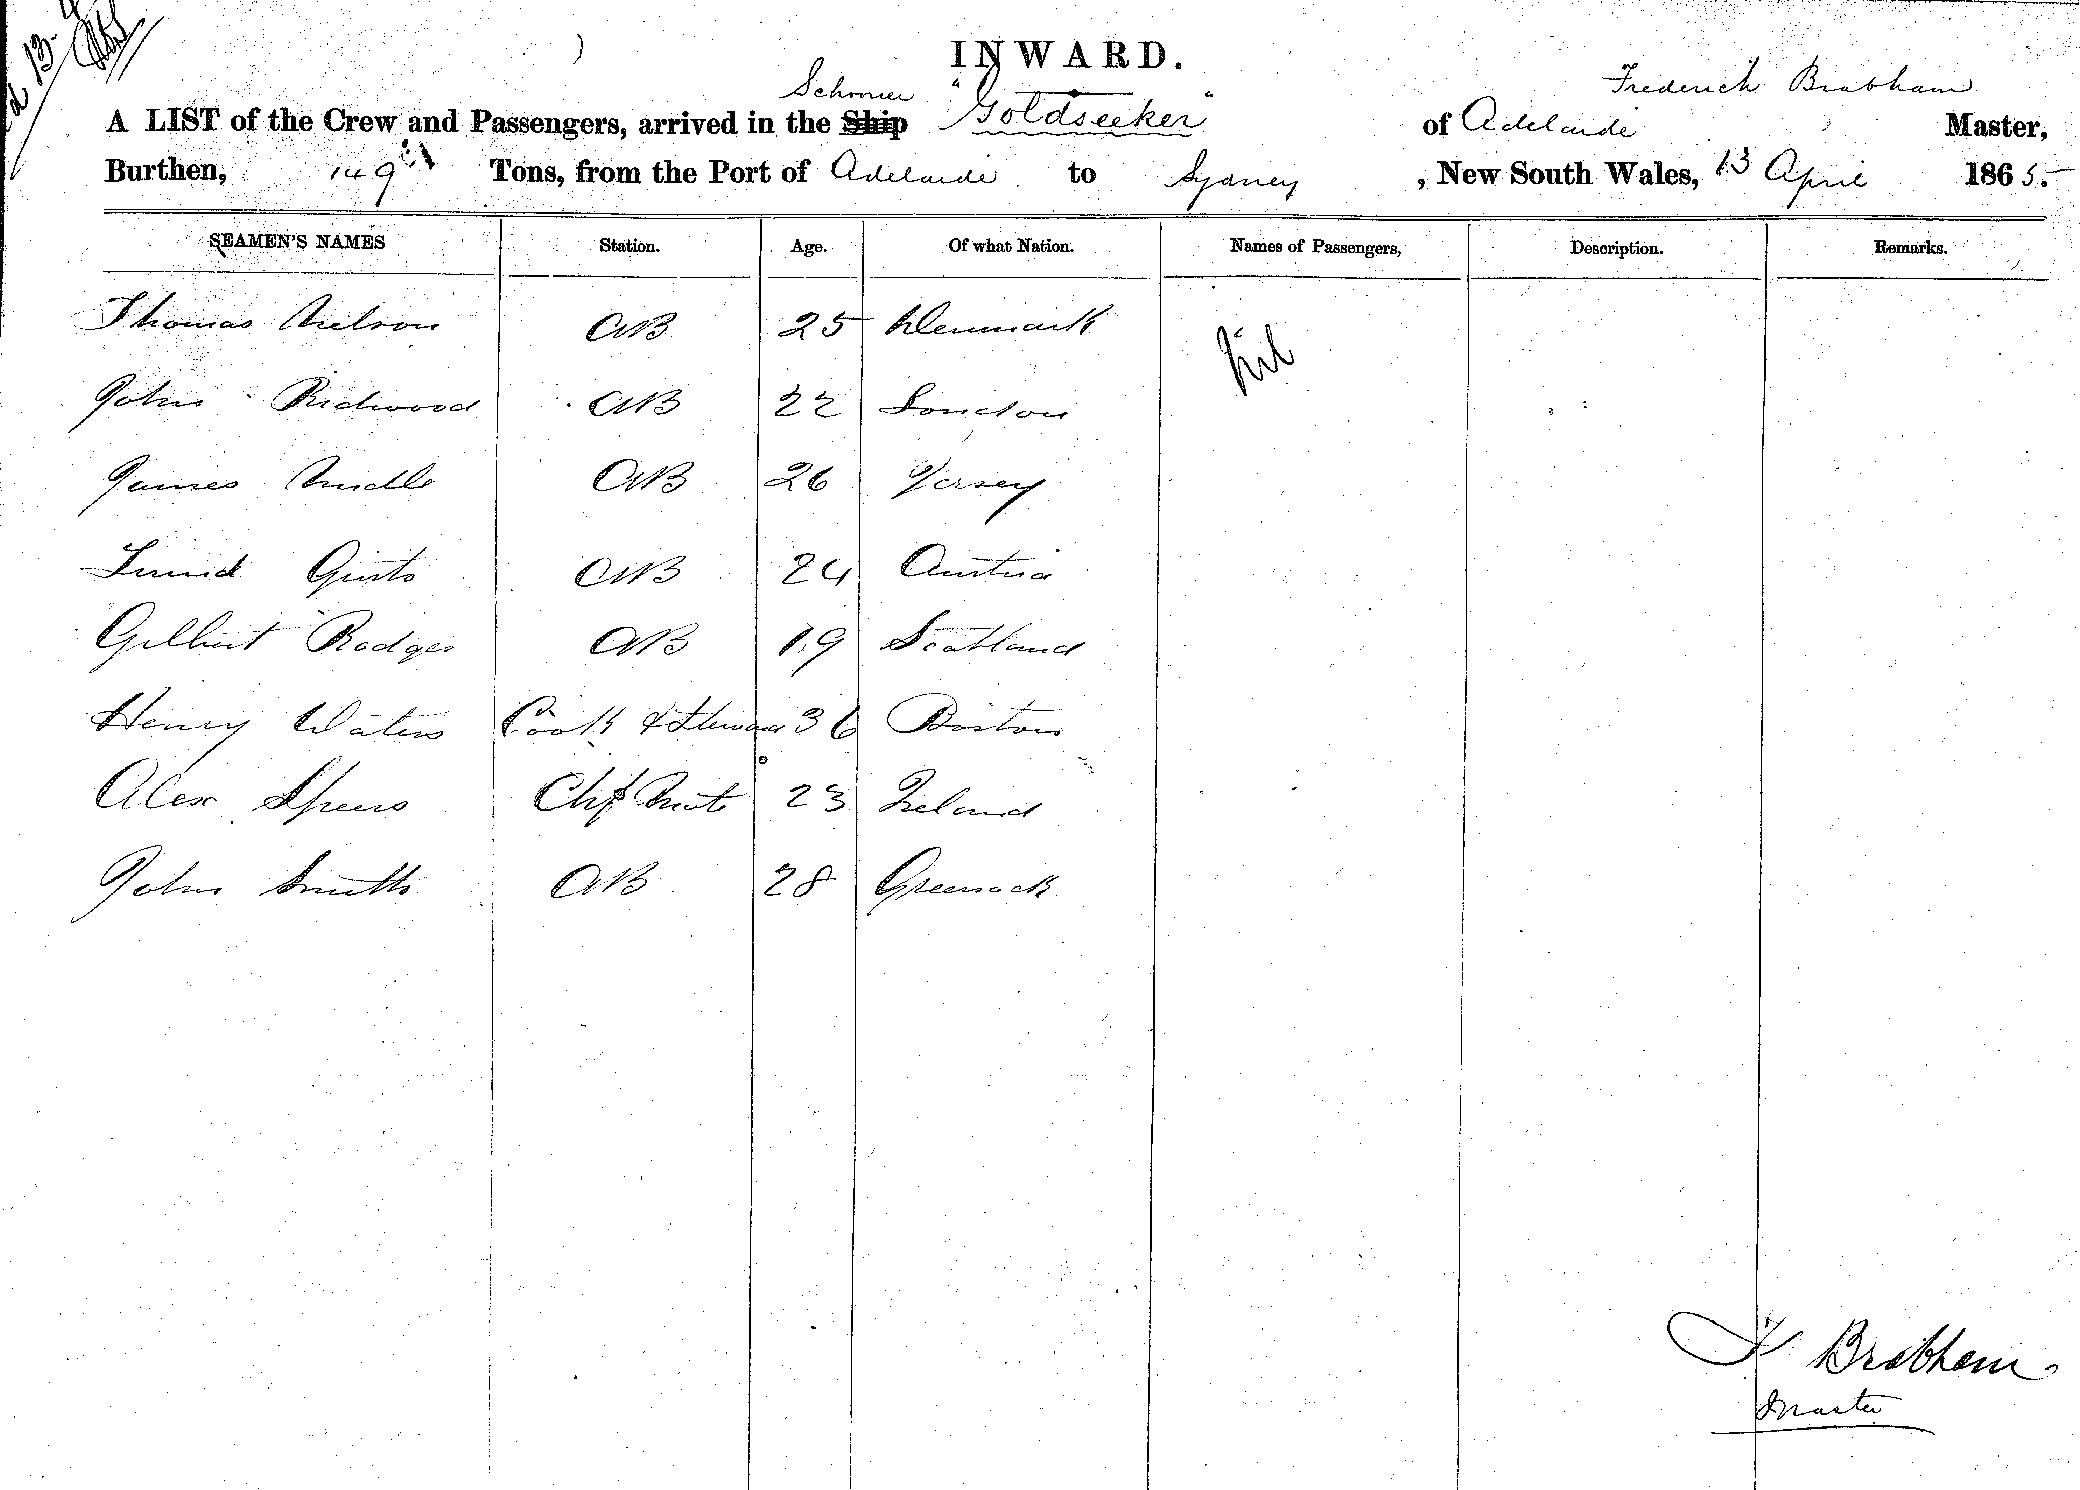 INWARD.
Schooner Frederick Brabham
A LIST of the Crew and Passengers, arrived in the Ship "Goldseeker" of Adelaide Master,
Burthen, 149 Tons, from the Port of Adelaide to Sydney , New South Wales, 13 April 1865.
SEAMEN'S NAMES Station. Age. Of what Nation. Names of Passengers, Description. Remarks.
Thomas Nelson AB 25 Denmark Nil
John Ridwood AB 22 London
James AB 26 Jersey
AB 24 Austria
Gilbert Rodger AB 19 Scotland
Henry Waters Cook & Steward 36 Boston
Alex Speers Chf Mate 23 Ireland
John Smith AB 28 Greenock
F Brabham
Master